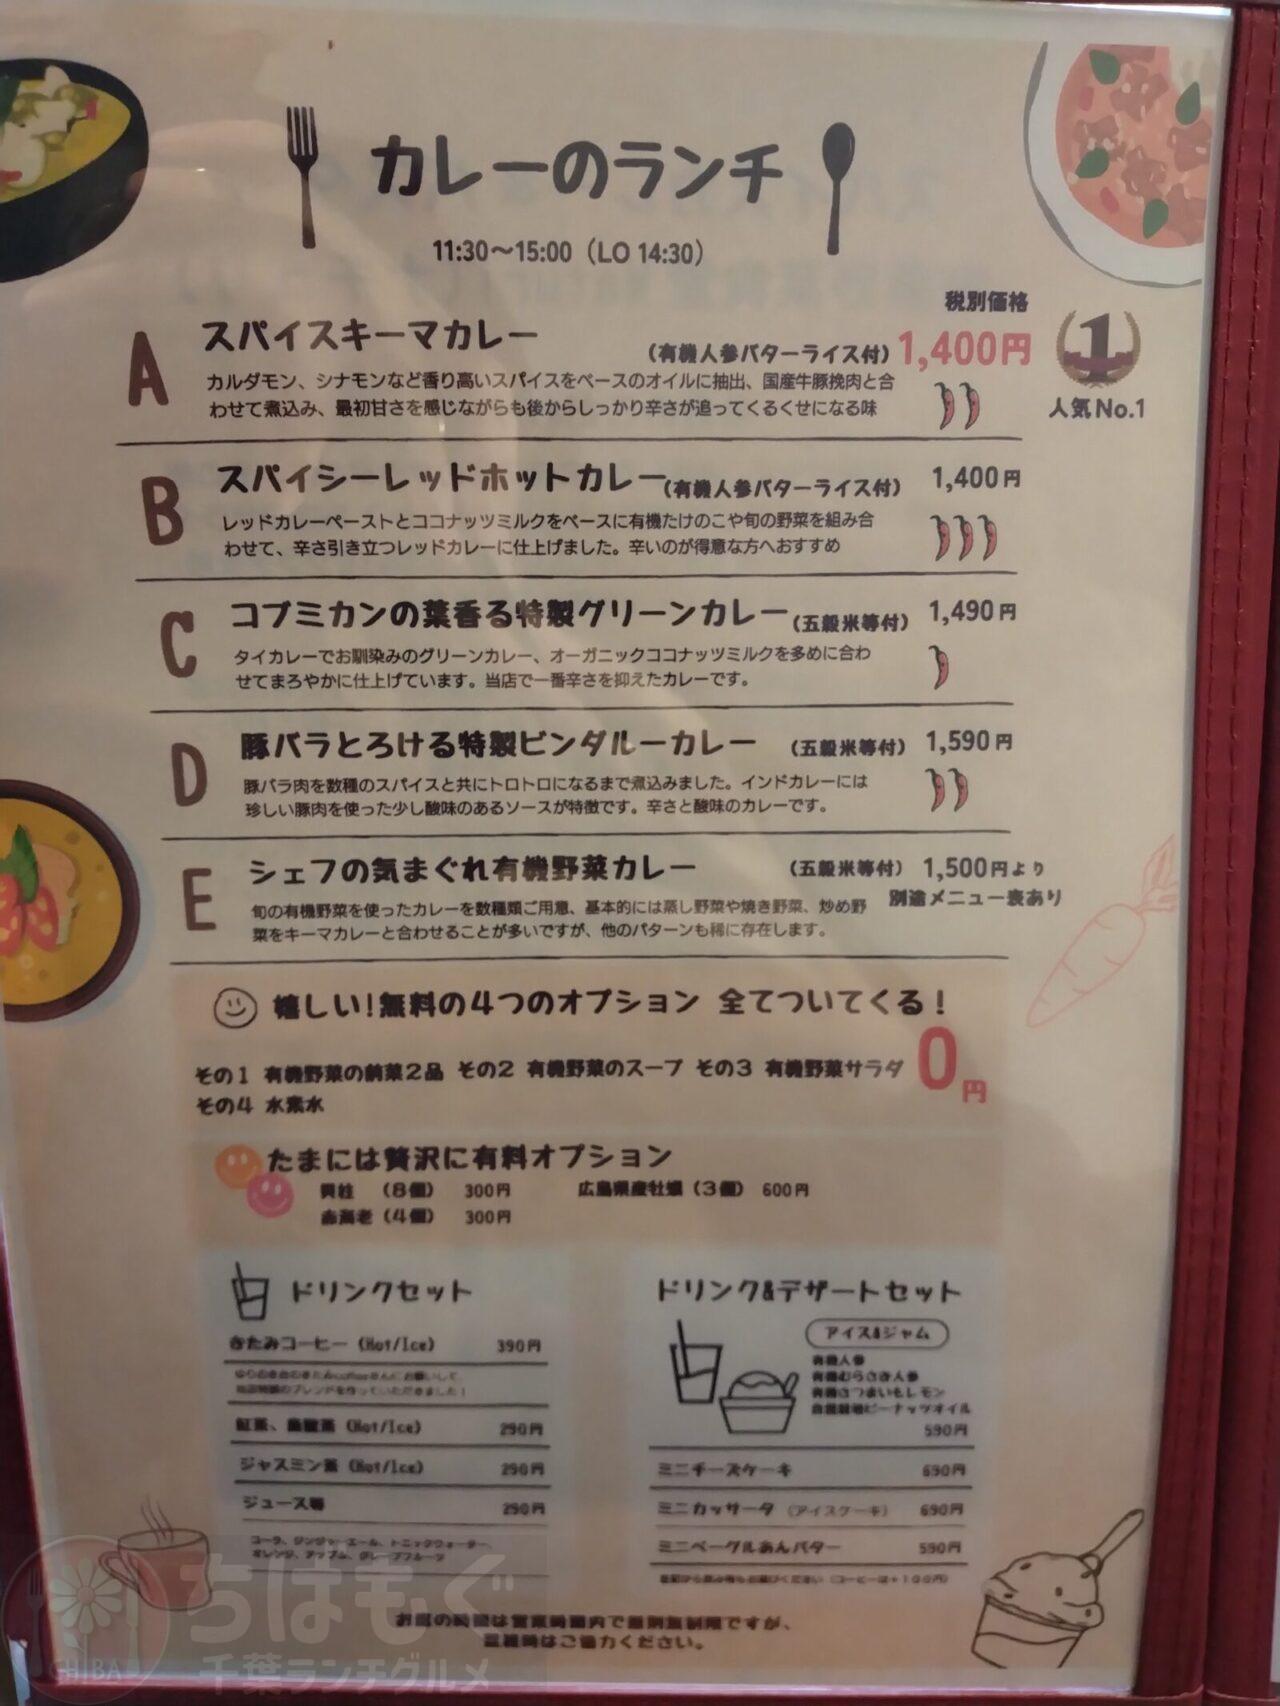 カレーのランチ
11:30～15:00（LO 14:30）
税別価格
A スパイスキーマカレー （有機人参バターライス付） 1,400円
1
人気No.1
カルダモン、シナモンなど香り高いスパイスをベースのオイルに抽出、国産牛豚挽肉と合
わせて煮込み、最初甘さを感じながらも後からしっかり辛さが追ってくるくせになる味
B スパイシーレッドホットカレー（有機人参バターライス付） 1,400円
レッドカレーペーストとココナッツミルクをベースに有機たけのこや旬の野菜を組み合
わせて、辛さ引き立つレッドカレーに仕上げました。辛いのが得意な方へおすすめ
C コブミカンの葉香る特製グリーンカレー（五穀米等付） 1,490円
タイカレーでお馴染みのグリーンカレー、オーガニックココナッツミルクを多めに合わ
せてまろやかに仕上げています。当店で一番辛さを抑えたカレーです。
D 豚バラとろける特製ビンダルーカレー （五穀米等付） 1,590円
豚バラ肉を数種のスパイスと共にトロトロになるまで煮込みました。インドカレーには
珍しい豚肉を使った少し酸味のあるソースが特徴です。辛さと酸味のカレーです。
E シェフの気まぐれ有機野菜カレー （五穀米等付） 1,500円より
別途メニュー表あり
旬の有機野菜を使ったカレーを数種類ご用意、基本的には蒸し野菜や焼き野菜、炒め野
菜をキーマカレーと合わせることが多いですが、他のパターンも稀に存在します。
嬉しい！無料の４つのオプション 全てついてくる！
その１ 有機野菜の前菜２品 その２ 有機野菜のスープ その３ 有機野菜サラダ 0円
その４ 水素水
たまには贅沢に有料オプション
（８個） 300円 広島県産牡蠣（３個） 600円
赤海老（４個） 300円
ドリンクセット
きたみコーヒー（Hot/Ice） 390円
紅茶、烏龍茶（Hot/Ice） 290円
ジャスミン茶（Hot/Ice） 290円
ジュース等 290円
コーラ、ジンジャーエール、トニックウォーター、
オレンジ、アップル、グレープフルーツ
ドリンク&デザートセット
アイス&ジャム
有機人参
有機むらさき人参
有機さつまいもレモン
自家焙煎ピーナッツオイル
590円
ミニチーズケーキ 690円
ミニカッサータ （アイスケーキ） 690円
ミニベーグルあんバター 590円
お席の時間は営業時間内で無制限ですが、
混雑時はご協力ください。
ちはもぐ
千葉ランチグルメ
CHIBA